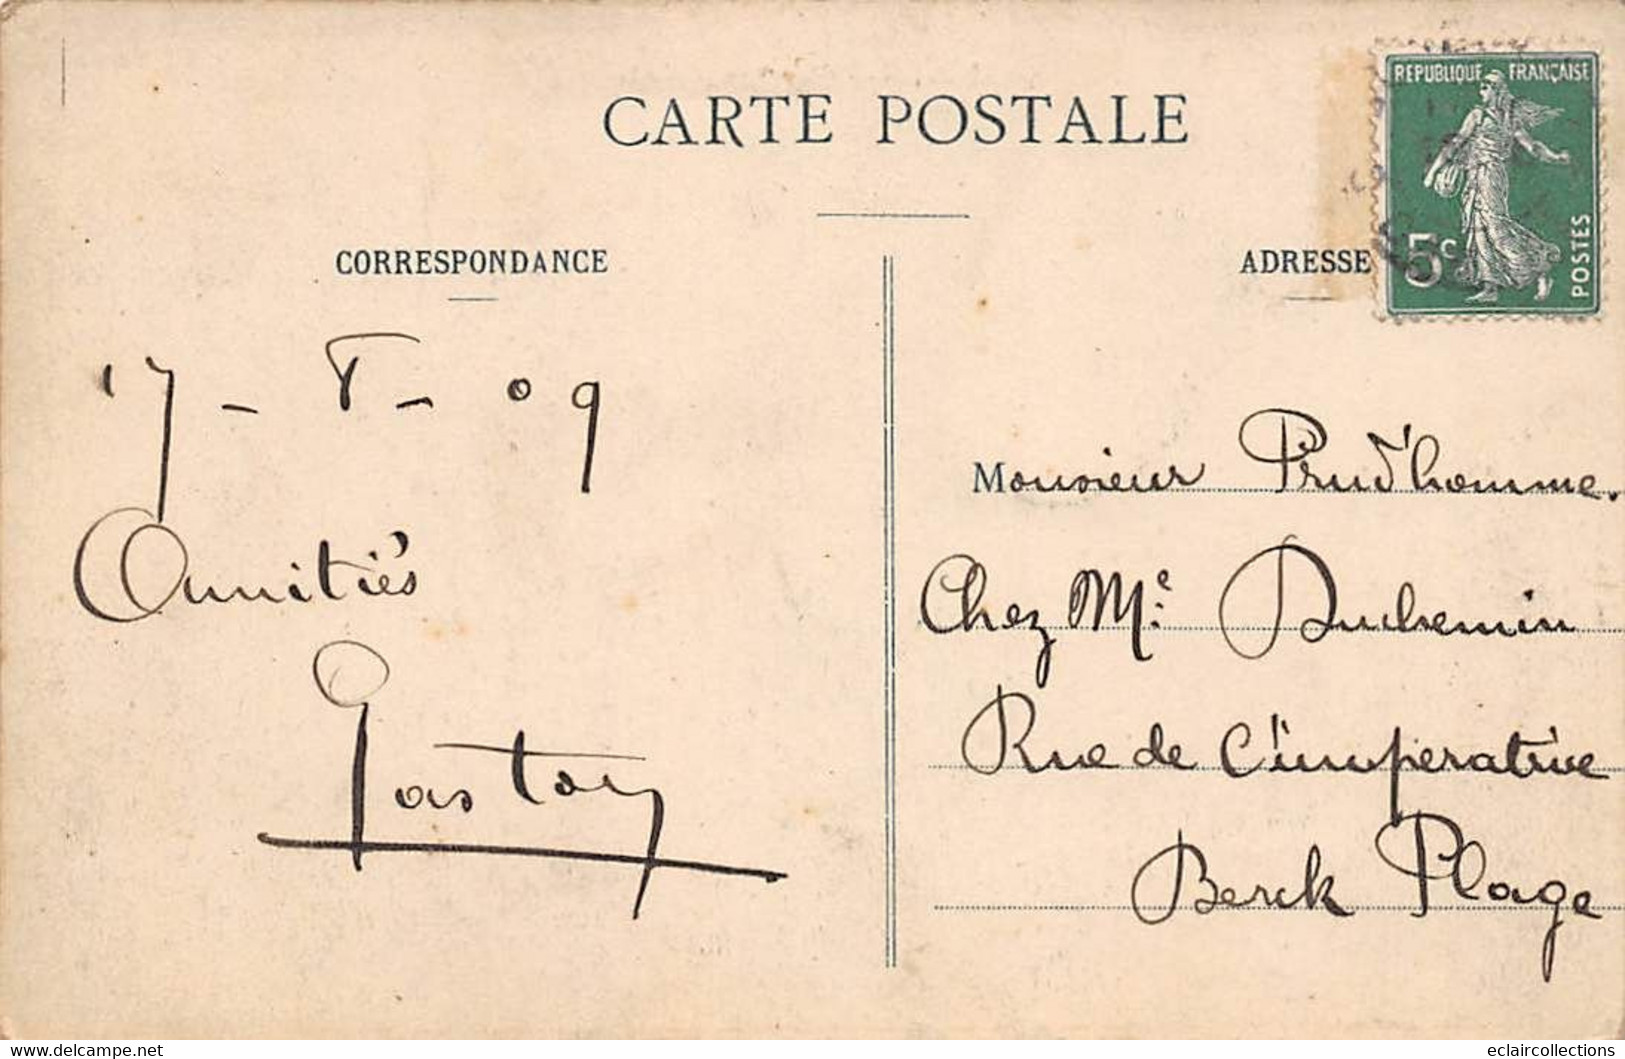 CARTE POSTALE
REPUBLIQUE FRANÇAISE
5c
POSTES
CORRESPONDANCE
17 - 8 - 09
Amitiés
Gaston
ADRESSE
Monsieur Prud'homme.
Chez Me. Duchemin
Rue de L'imperatrice
Berck Plage
delcampe.net
eclaircollections